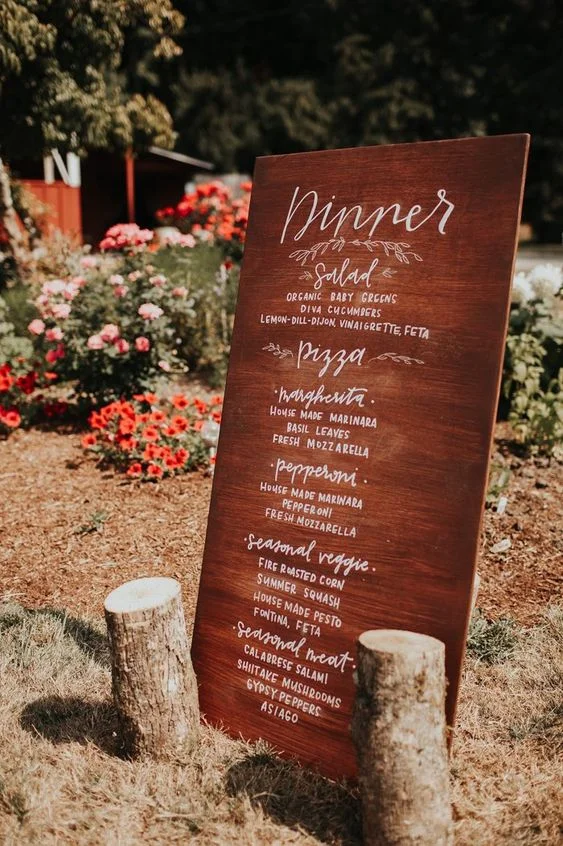 Dinner
Salad
ORGANIC BABY GREENS
DIVA CUCUMBERS
LEMON-DILL-DIJON, VINAIGRETTE, FETA
pizza
·margherita·
HOUSE MADE MARINARA
BASIL LEAVES
FRESH MOZZARELLA
·pepperoni·
HOUSE MADE MARINARA
PEPPERONI
FRESH MOZZARELLA
·seasonal veggie·
FIRE ROASTED CORN
SUMMER SQUASH
HOUSE MADE PESTO
FONTINA, FETA
·seasonal meat·
CALABRESE SALAMI
SHIITAKE MUSHROOMS
GYPSY PEPPERS
ASIAGO